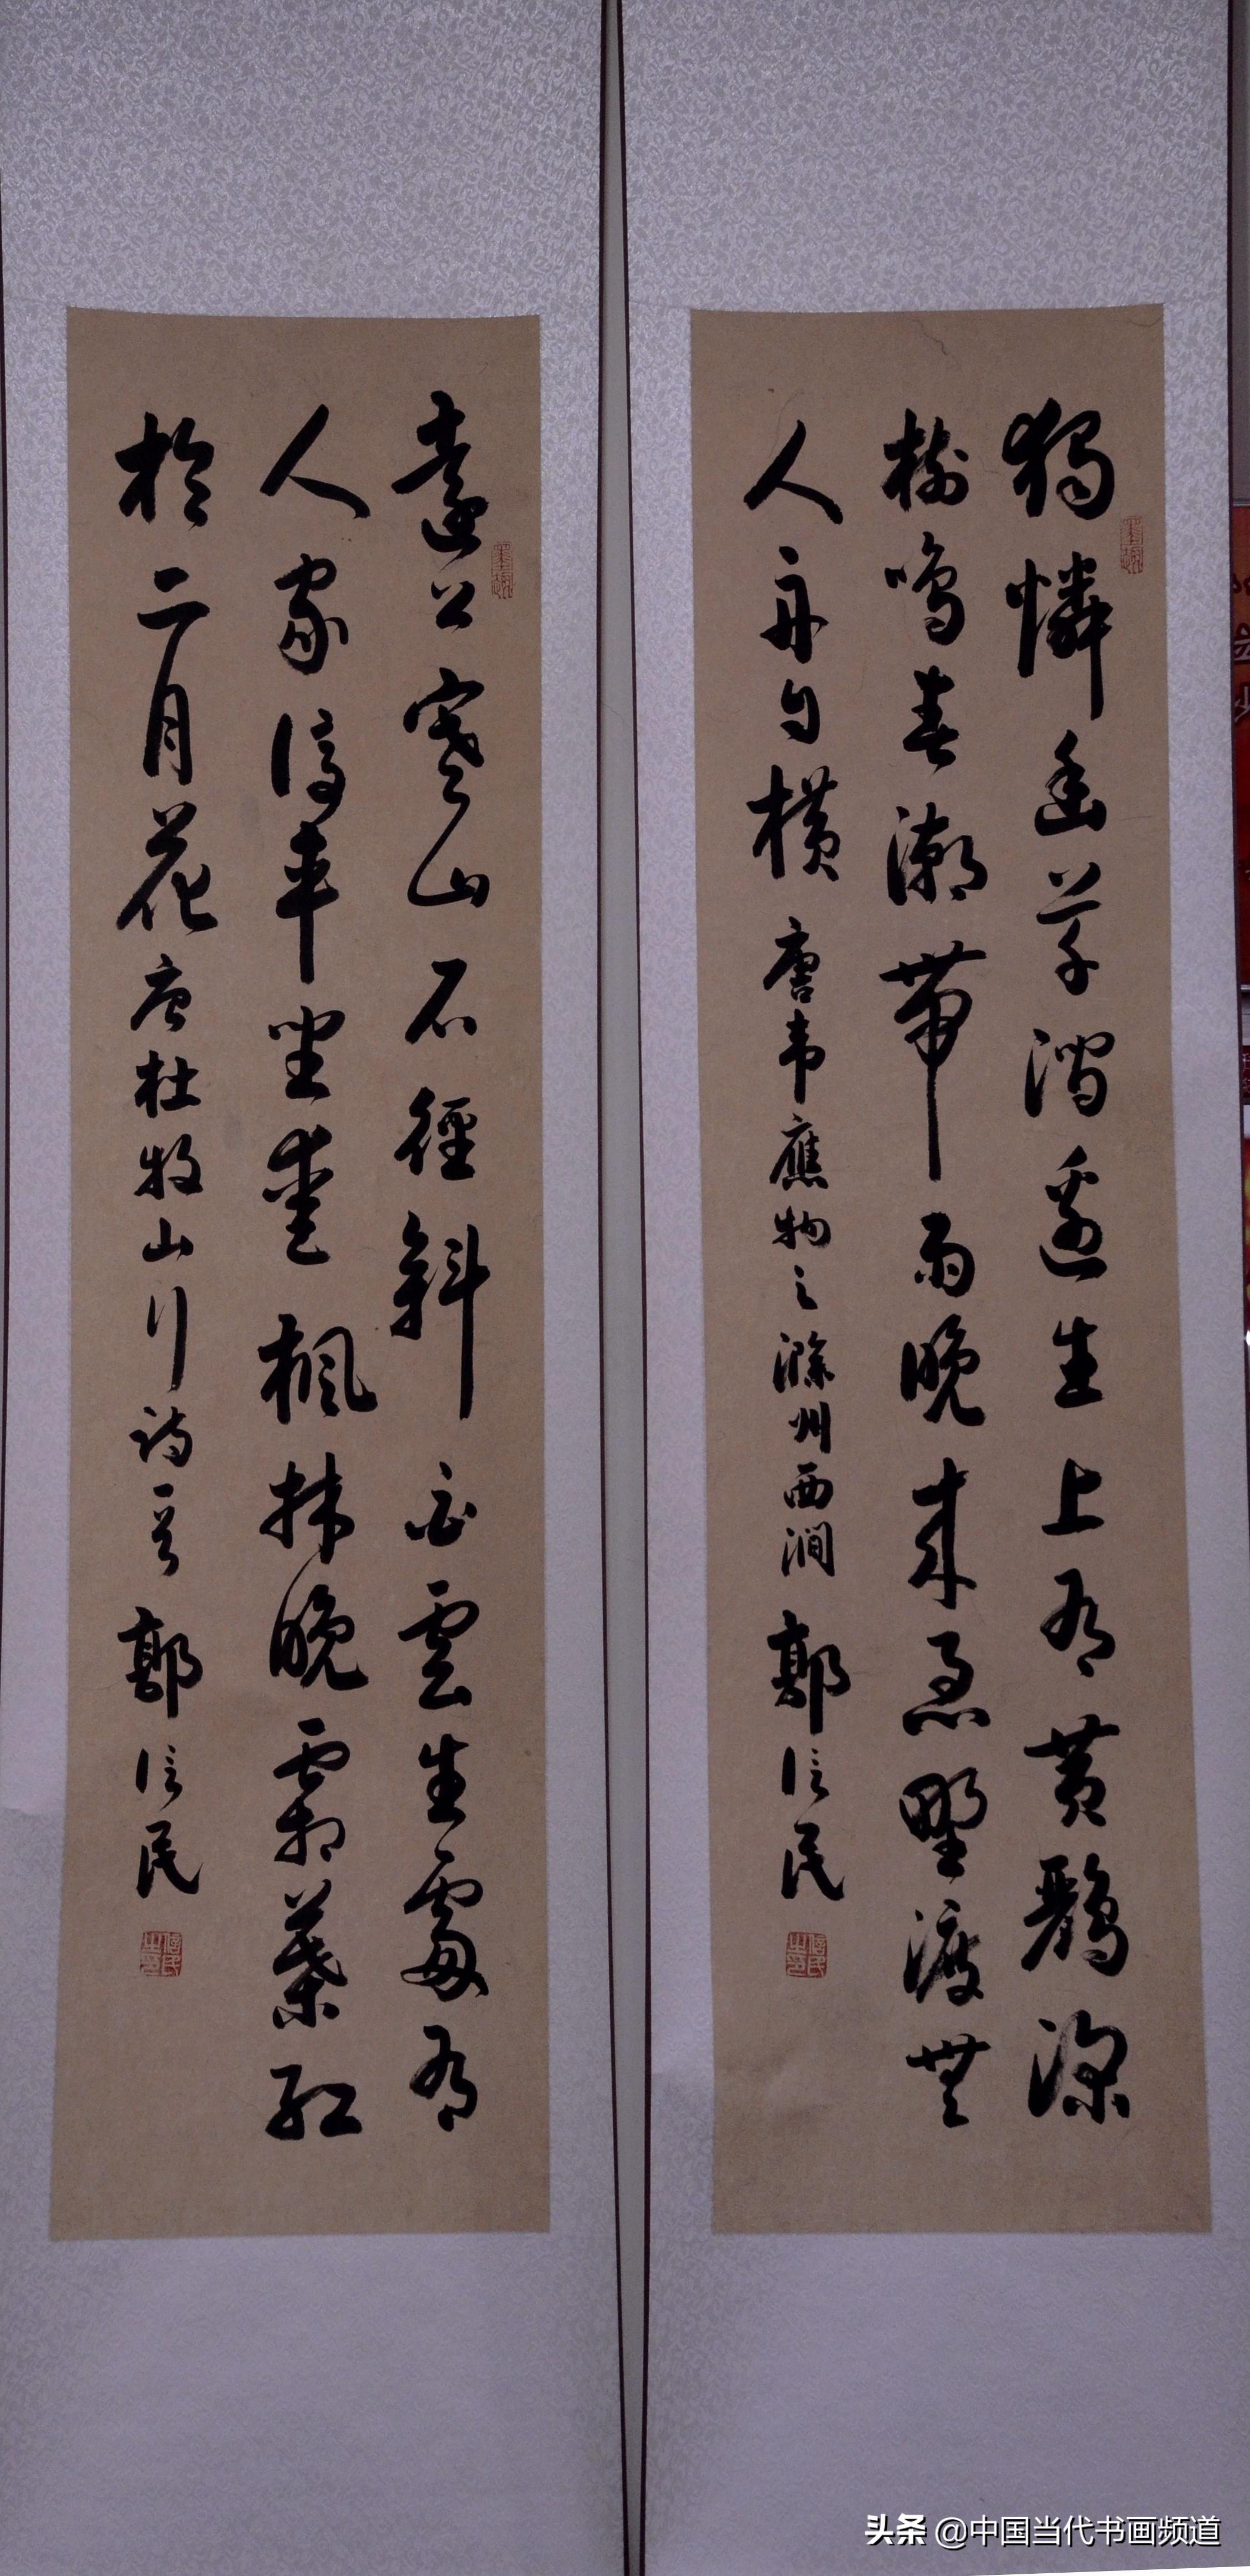 獨憐幽草澗邊生上有黃鸝深
樹鳴春潮帶雨晚來急野渡無
人舟自橫
唐韋應物之滁州西澗 郭信民
信民之印
遠上寒山石徑斜白雲生處有
人家停車坐愛楓林晚霜葉紅
於二月花
唐杜牧山行詩意 郭信民
信民之印
头条 @中国当代书画频道